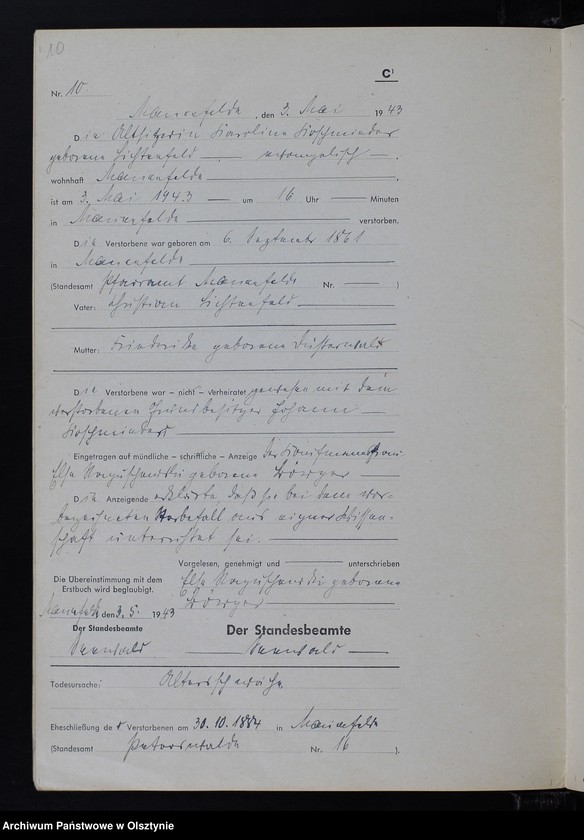 10
C¹
Nr. 10
Marienfelde, den 3. Mai 1943
Die Altsitzerin Karoline Koschminder
geborene Lichtenfeld — evangelisch —,
wohnhaft Marienfelde
ist am 3. Mai 1943 — um 16 Uhr — Minuten
in Marienfelde verstorben.
Die Verstorbene war geboren am 6. September 1861
in Marienfelde
(Standesamt Pfarramt Marienfelde Nr. — )
Vater: Christian Lichtenfeld
Mutter: Friederike geborene Düsterwald
Die Verstorbene war – nicht – verheiratet gewesen mit dem
verstorbenen Grundbesitzer Johann
Koschminder
Eingetragen auf mündliche – schriftliche – Anzeige der Kaufmannsfrau
Elsa geborene
Die Anzeigende erklärte, daß sie bei dem vor-
bezeichneten Sterbefall aus eigner Wissen-
schaft unterrichtet sei.
Vorgelesen, genehmigt und — unterschrieben
Die Übereinstimmung mit dem
Erstbuch wird beglaubigt.
Elsa geborene
Marienfelde, den 3. 5. 1943
Der Standesbeamte
Der Standesbeamte
Todesursache: Altersschwäche
Eheschließung de r Verstorbenen am 30. 10. 1884 in Marienfelde
(Standesamt Peterswalde Nr. 16 ).
Archiwum Państwowe w Olsztynie